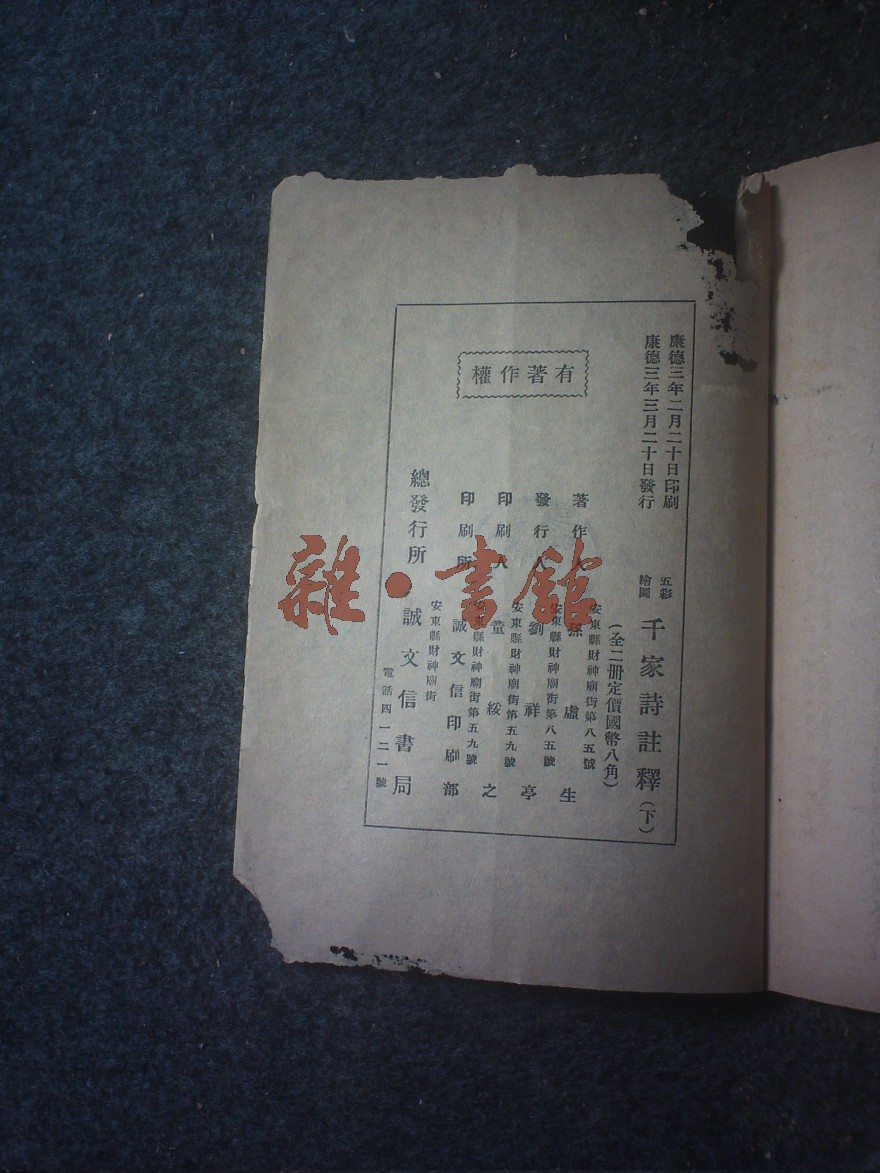 康德三年二月二十日印刷
康德三年三月二十日發行
五彩
繪圖
千家詩註釋(下)
(全二冊定價國幣八角)
安東縣財神廟街第八五號
著作人 孫虛生
安東縣財神廟街第八五號
發行人 劉祥亭
安東縣財神廟街第五九號
印刷人 童綏之
安東縣財神廟街第五九號
印刷所 誠文信印刷部
安東縣財神廟街
總發行所 誠文信書局
電話四一二一號
有著作權
雜·書館